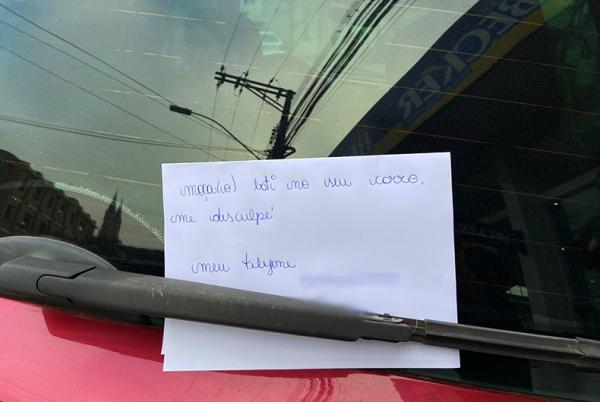 BECKER
moça(o) bati no seu carro,
me desculpe
meu telefone